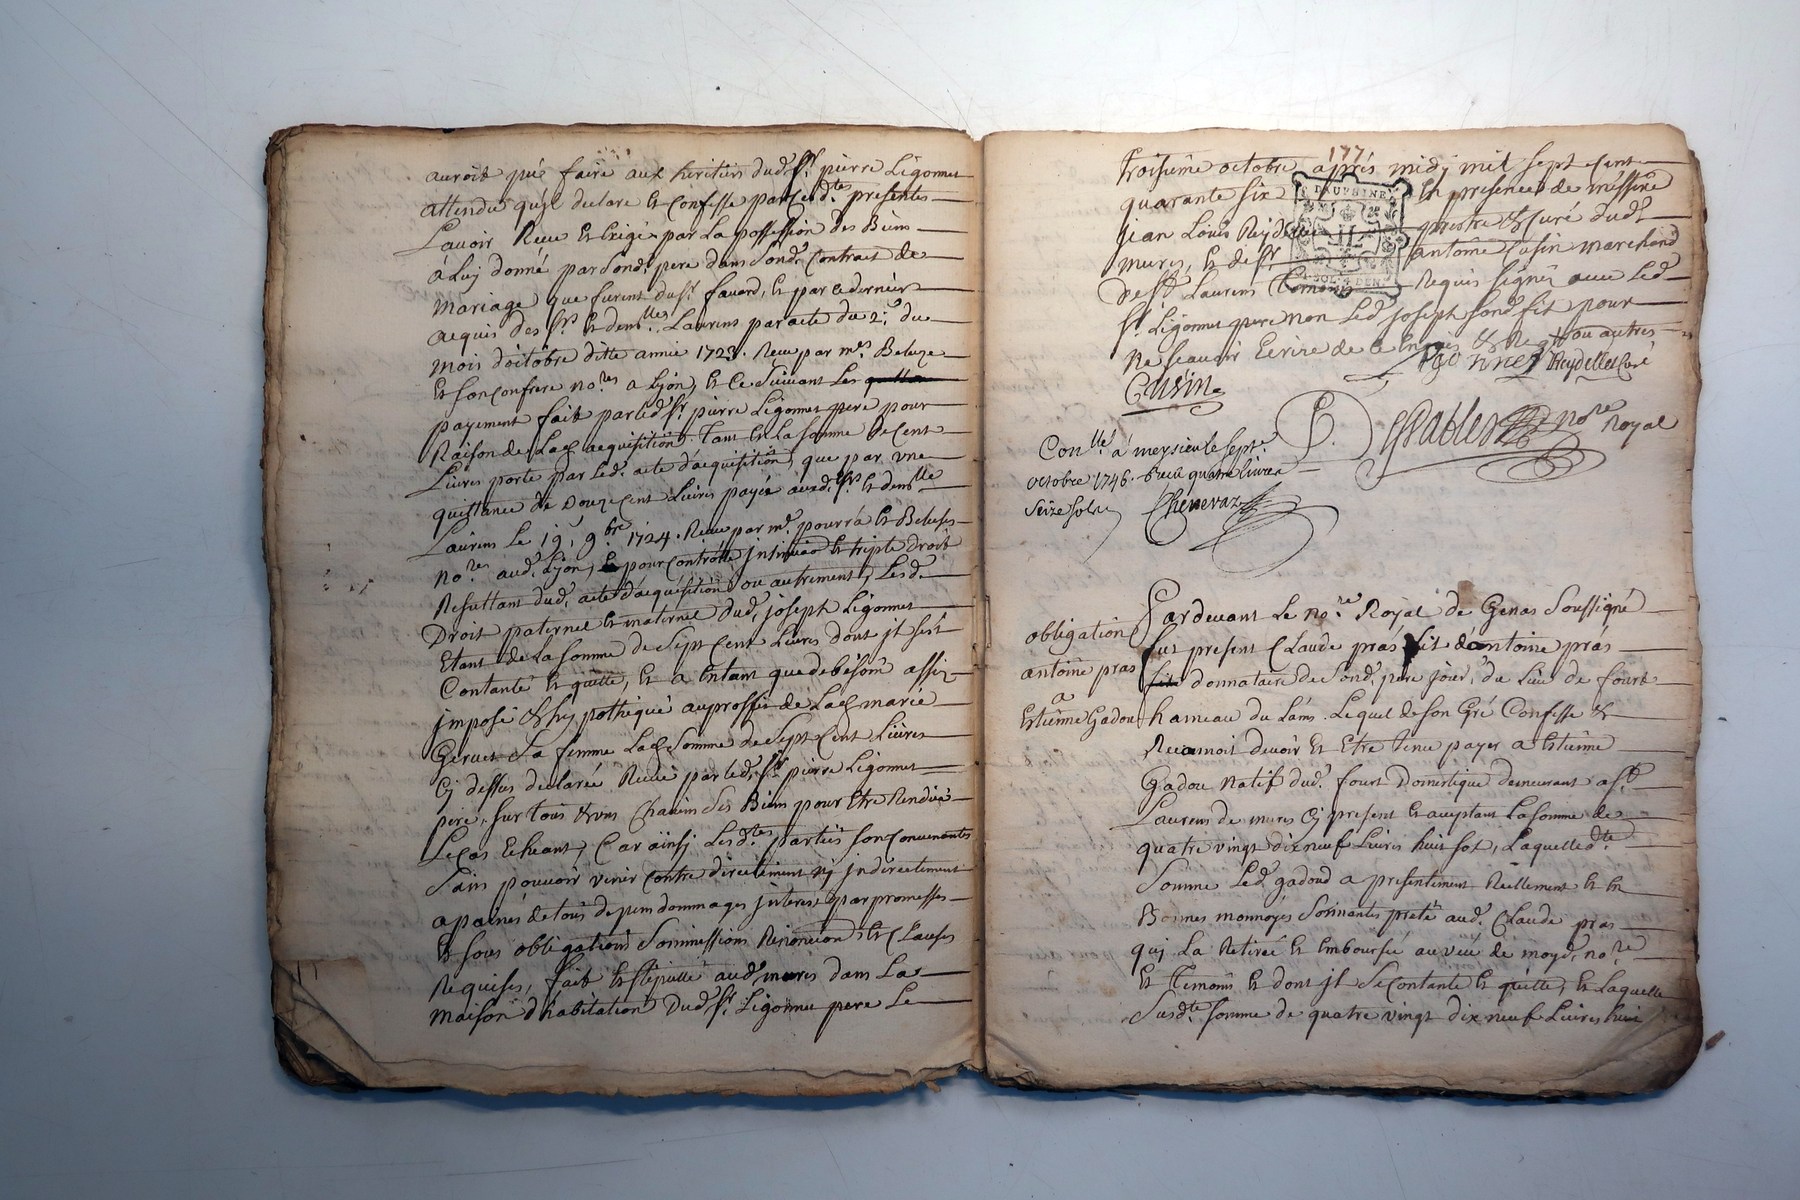 auroit pué faire aux heritiers dud. Sr. pierre Ligonnet
attendu qu'jl declare et confesse par cesd.tes presentes
L'avoir Receu et Exigé par La possession des Biens
à Luy donné par Sond. pere dans Sond. Contrat de
Mariage que furent du Sr. favard, et par ce dernier
acquis des Srs. et dem.lles Laurens par acte du 2e. du
mois d'octobre ditte année 1723. Receu par me. Beluze
et son Confrere no.res a Lyon, et ce Suivant Les
payement fait par led. Sr. pierre Ligonnet pere pour
Raison de Lad. acquisition Tant de La Somme de Cent
Livres porté par Led. acte d'acquisition, que par une
quittance de Douze Cent Livres payée auxd. Srs. et dem.lle
Laurens Le 19e. 9bre. 1724. Receu par me. pourra et Beluses
No.res aud. Lyon, et pour Controlle jnsinuaon et triple droit
Resultant dud. acte d'acquisition ou autrement, Lesd.
Droit paternel et maternel dud. joseph Ligonnet
Etant de La Somme de Sept Cent Livres dont jl s'est
Contanté et quitte, et a Entant que de bésoin assig
jmposé et hypothéqué au proffit de Lad. marie
Gervet Sa femme Lad. Somme de Sept Cent Livres
Cy dessus declarée Receue par led. Sr. pierre Ligonnet
pere, sur Tous et uns Chacuns Ses Biens pour Etre Rendüe
Le Cas Echeant, Car äinsy Lesd.tes parties Son Convenantes
Sans pouvoir venir Contre directement ny jndirectement
a paines de tous depens dommages jnterest par promesses
et sous obligations Soumissions Renonciaons et Clauses
Requises, fait et stipullé aud. mures dans La
Maison d'habitation Dud. Sr. Ligonnet pere Le
177
Troisieme octobre apres midy mil sept Cent
quarante Six En presence de messire
jean Louis Reydellet prestre et Curé dud.
mures, et de Sr. antoine Cusin marchand
de St. Laurens Temoins Requis signés avec Led.
Sr. Ligonnet pere non Led. joseph Sond. fit pour
ne Scavoir Ecrire de ce Enquis et Requis ou autres
Ligonnet Reydellet Curé
Cusin
no.re Royal
DAUPHINE
Con.llé a meysieu le sept.e
octobre 1746. Receu quatre livres
Seize Sols
Chenevaz
obligation
antoine pras
a
Estienne Gadou
Pardevant Le no.re Royal de Genas Soussigné
fut present Claude prás fit d'antoine prás
donnataire de Sond. pere jour. du Lieu de fourt
hameau du Lans. Lequel de son Gré Confesse et
Reconnoit devoir et Etre Tenu payer a Estienne
Gadou Natif dud. fourt Domestique demeurant a St.
Laurens de mures Cy present et acceptant La Somme de
quatre vingt dix neuf Livres huit sol, Laquelle d.te
Somme Led. gadoud a presentement Reellement et En
Bonnes monnoyes Sonnantes preté aud. Claude pras
quj La Retirée et Emboursée au vüe de moyd. no.re
et Temoins et dont jl Se Contante et quitte, et Laquelle
Susd.te somme de quatre vingt dix neuf Livres huit